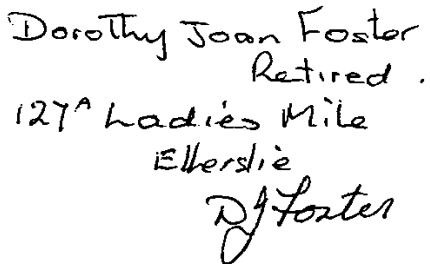 Dorothy Joan Foster
Retired.
127A Ladies Mile
Ellerslie
DJ Foster